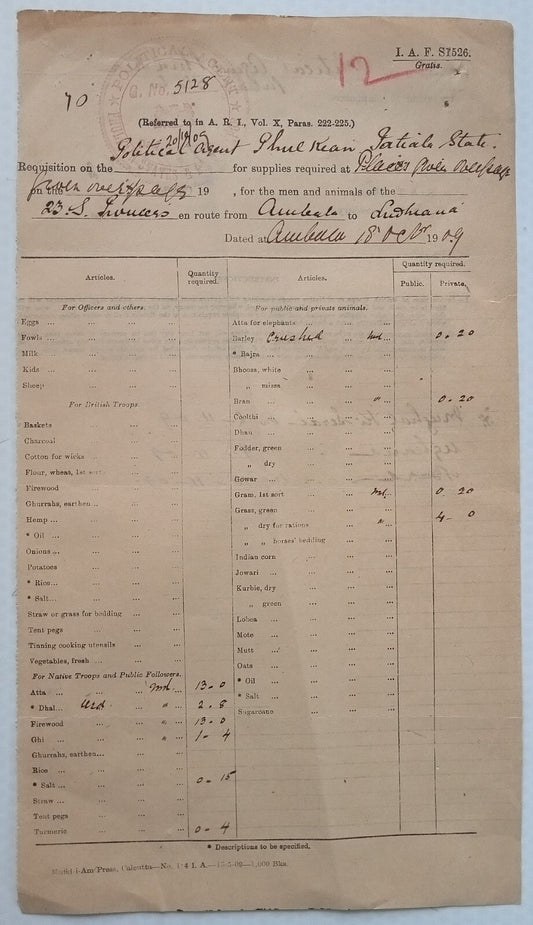 I. A. F. S 1526.
Gratis.
12
POLITICAL AGENT
G. No. 5128
20/10/09
70
(Referred to in A. R. I., Vol. X, Paras. 222-225.)
Political Agent Phulkian Patiala State.
Requisition on the for supplies required at Places given overpage
on the given overpage 19 , for the men and animals of the
23. S. Pioneers en route from Ambala to Ludhiana
Dated at Ambala 18 Octr 1909
Articles. Quantity required. Articles. Quantity required.
Public. Private.
For Officers and others.
Eggs ... ... ... ...
Fowls ... ... ... ...
Milk ... ... ... ...
Kids ... ... ... ...
Sheep ... ... ...
For British Troops.
Baskets ... ... ...
Charcoal ... ... ...
Cotton for wicks ... ... ...
Flour, wheas, 1st sort ... ...
Firewood ... ... ...
Ghurrahs, earthen ... ... ...
Hemp ... ... ... ...
* Oil ... ... ... ...
Onions ... ... ... ...
Potatoes ... ... ...
* Rice... ... ... ...
* Salt... ... ... ...
Straw or grass for bedding ... ...
Tent pegs ... ... ...
Tinning cooking utensils ... ...
Vegetables, fresh ... ... ...
For Native Troops and Public Followers.
Atta ... ... md. ... 13 - 0
* Dhal... Urd. " ... 2 - 8
Firewood ... " ... 13 - 0
Ghi ... ... " ... 1 - 4
Ghurrahs, earthen... ... ...
Rice ... ... ... ...
* Salt ... ... ... ... 0 - 15
Straw ... ... ... ...
Tent pegs ... ... ...
Turmeric ... ... ... 0 - 4
For public and private animals.
Atta for elephants ... ... ...
Barley Crushed ... md... 0 . 20
* Bajra ... ... ... ...
Bhoosa, white ... ... ...
" missa ... ... ...
Bran ... ... " ... 0 . 20
Coolthi ... ... ... ...
Dhan ... ... ... ...
Fodder, green ... ... ...
" dry ... ... ...
Gowar ... ... ... ...
Gram, 1st sort ... md... 0 . 20
Grass, green ... ... ... 4 - 0
" dry for rations " ...
" " horses' bedding ... ...
Indian corn ... ... ...
Jowari ... ... ... ...
Kurbie, dry ... ... ...
" green ... ... ...
Lobea ... ... ... ...
Mote ... ... ... ...
Mutt ... ... ... ...
Oats ... ... ... ...
* Oil ... ... ... ...
* Salt ... ... ... ...
Sugarcane ... ... ...
* Descriptions to be specified.
Press, Calcutta—No. I. A.—15-5-09—1,000 Bks.